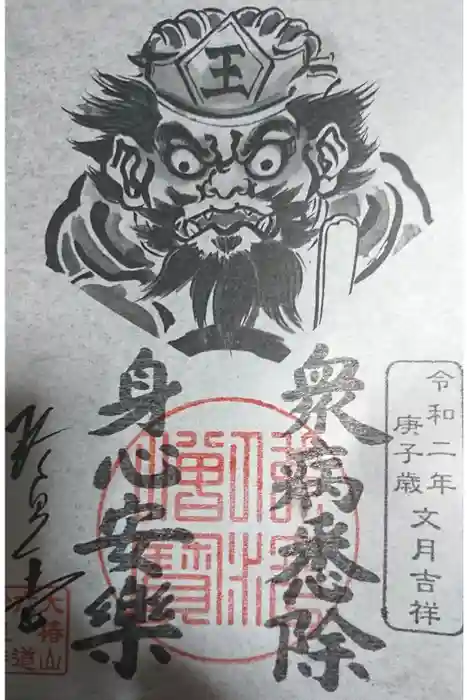 王
令和二年
庚子歳 文月吉祥
衆病悉除
身心安樂